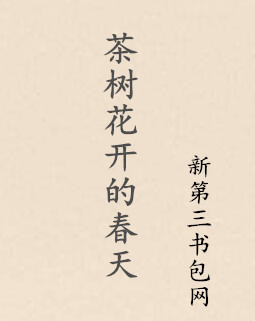 茶树花开的春天
新第三书包网